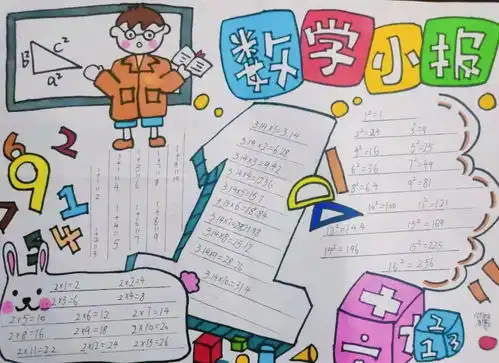 数学小报
b² c²
a²
1+1=2
1+3=4
1+5=6
1+7=8
1+2=3
1+4=5
1+6=7
1+8=9
3.14×1=3.14
3.14×2=6.28
3.14×3=9.42
3.14×4=12.56
3.14×5=15.7
3.14×6=18.84
3.14×7=21.98
3.14×8=25.12
3.14×9=28.26
3.14×10=31.4
1²=1
2²=4 3²=9
4²=16 5²=25
6²=36 7²=49
8²=64 9²=81
10²=100 11²=121
12²=144 13²=169
14²=196 15²=225
16²=256
6 2
9 1
7 3 4
2×1=2 2×2=4
2×3=6 2×4=8
2×5=10 2×6=12 2×7=14
2×8=16 2×9=18 2×10=20
2×11=22 2×12=24 2×13=26
+ ÷ ×
2 1 3